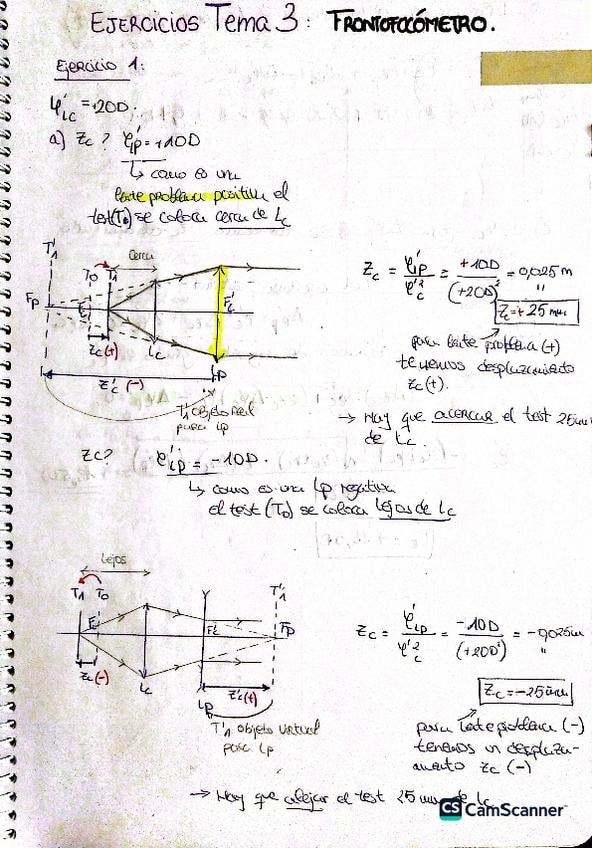 EJERCICIOS TEMA 3: FRONTOFOCÓMETRO.
Ejercicio 1:
φ'LC = +20D.
a) Zc? φ'LP = +10D
↳ como es una
lente problema positiva el
test (T0) se coloca cerca de Lc
T'1
T0 T1
cerca
Fp
Fc
F'c
Zc (+)
Lc
Lp
Z'c (-)
T'1 objeto real
para Lp
Zc = φ'LP / φ'c² = +10D / (+20D)² = 0,025 m
"
Zc = + 25 mm
para lente problema (+)
tenemos desplazamiento
Zc (+).
→ Hay que acercar el test 25mm
de Lc.
Zc? φ'LP = -10D.
↳ como es una Lp negativa
el test (T0) se coloca lejos de Lc
Lejos
T1 T0
T'1
Fc
F'c
Fp
Zc (-)
Lc
Lp
Z'c (+)
T'1 objeto virtual
para Lp
Zc = φ'LP / φ'c² = -10D / (+20D)² = -0,025m
"
Zc = -25 mm
para lente problema (-)
tenemos un desplaza-
miento Zc (-)
→ Hay que alejar el test 25 mm de Lc
CS CamScanner